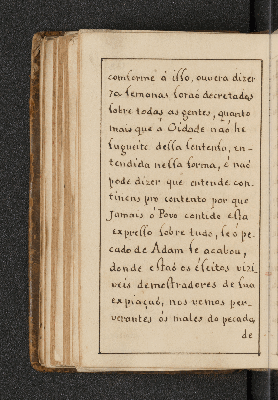 comforme à isso, ouvera dizer
70 semonas foraõ decretadas
sobre todas as gentes, quanto
mais que à Cidade naõ he
sugueito dessa sentensa, en-
tendida nessa forma, é naõ
pode dizer que entende con-
tinens pro contento por que
Jamais ó Povo contido esta
expresso sobre tudo, se ó pe
cado de Adam se acabou,
donde estaõ os éleitos vizi
veis demostradores de sua
expiaçaõ, nos vemos per-
verantes ós males do pecado,
de